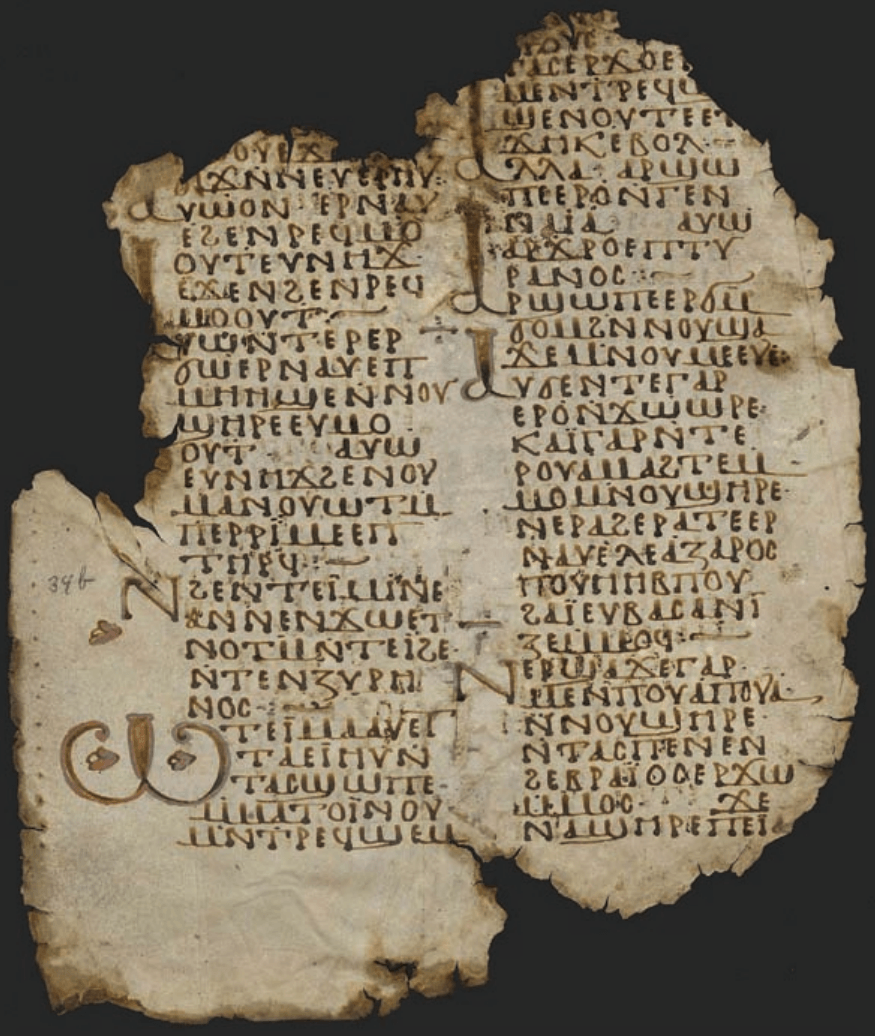 ⲟⲩⲉϫ
ϩⲓϫⲛⲛⲉⲩⲉⲣⲏⲩ
ⲁⲩⲱⲟⲛ ⲉⲣⲛⲁⲩ
ⲉϩⲉⲛⲣⲉϥⲙⲟ
ⲟⲩⲧⲉⲩⲛⲏϫ
ⲉϫⲉⲛϩⲉⲛⲣⲉϥ
ⲙⲟⲟⲩⲧ
ⲁⲩⲱⲛⲧⲉⲣⲉⲣ
ϭⲱⲉⲣⲛⲁⲩⲉⲡ
ⲙⲏⲏϣⲉⲛⲛⲟⲩ
ϣⲏⲣⲉⲉⲩⲙⲟ
ⲟⲩⲧ ⲁⲩⲱ
ⲉⲩⲛⲏϫϩⲉⲛⲟⲩ
ⲙⲁⲛⲟⲩⲱⲧⲙ
ⲡⲉⲣⲣⲓⲙⲉⲉⲡ
ⲧⲏⲣϥ:
ⲛϩⲉⲛⲧⲉⲓⲙⲓⲛⲉ
ⲁⲛⲛⲉⲛϫⲱⲉⲧ
ⲛⲟⲧⲙⲛⲧⲉⲓϩⲉ
ⲛⲧⲉⲛⲍⲩⲣⲏ
ⲛⲟⲥ
ⲱⲧⲉⲓⲙⲁⲁⲩⲉⲧ
ⲧⲁⲉⲓⲏⲩⲛ
ⲧⲁⲥϣⲱⲡⲉ·
ⲙⲙⲁⲧⲟⲓⲛⲟⲩ
ⲙⲛⲧⲣⲉϥϣⲉⲙ
ⲧⲁⲥⲉⲣϫⲟⲉ
ⲙⲉⲛⲧⲣⲉϥϣ
ϣⲉⲛⲟⲩⲧⲉⲉ
ϫⲏⲕⲉⲃⲟⲗ
ⲁⲗⲗⲁ ⲁⲣϣⲱ
ⲡⲉⲉⲣⲟⲛⲅⲉⲛ
ⲛⲁⲓⲁ ⲁⲩⲱ
ⲁⲣϫⲣⲟⲉⲡⲧⲩ
ⲣⲁⲛⲟⲥ:
ⲁⲣϣⲱⲡⲉⲉⲣϭⲙ
ϭⲟⲙϩⲛⲛⲟⲩϣⲁ
ϫⲉⲙⲛⲟⲩⲙⲉⲉⲩⲉ:
ⲁⲩϭⲉⲛⲧⲉⲅⲁⲣ
ⲉⲣⲟⲛϫⲱⲱⲣⲉ·
ⲕⲁⲓⲅⲁⲣⲛⲧⲉ
ⲣⲟⲩⲁⲙⲁϩⲧⲉⲙ
ⲙⲟⲙⲛⲟⲩϣⲏⲣⲉ·
ⲛⲉⲣⲁϩⲉⲣⲁⲧⲉⲉⲣ
ⲛⲁⲩⲉⲗⲉⲁⲍⲁⲣⲟⲥ
ⲡⲟⲩⲏⲏⲃⲡⲟⲩ
ϩⲁⲓⲉⲩⲃⲁⲥⲁⲛⲓ
ⲍⲉⲙⲙⲟϥ:
ⲛⲉⲣϣⲁϫⲉⲅⲁⲣ
ⲙⲉⲛⲡⲟⲩⲁⲡⲟⲩⲁ
ⲛⲛⲟⲩϣⲏⲣⲉ·
ⲛⲧⲁⲥⲡⲉⲛⲉⲛ
ϩⲉⲃⲣⲁⲓⲟⲥⲉⲣϫⲱ
ⲙⲙⲟⲥ ϫⲉ
ⲛⲁϣⲏⲣⲉⲡⲉⲓ